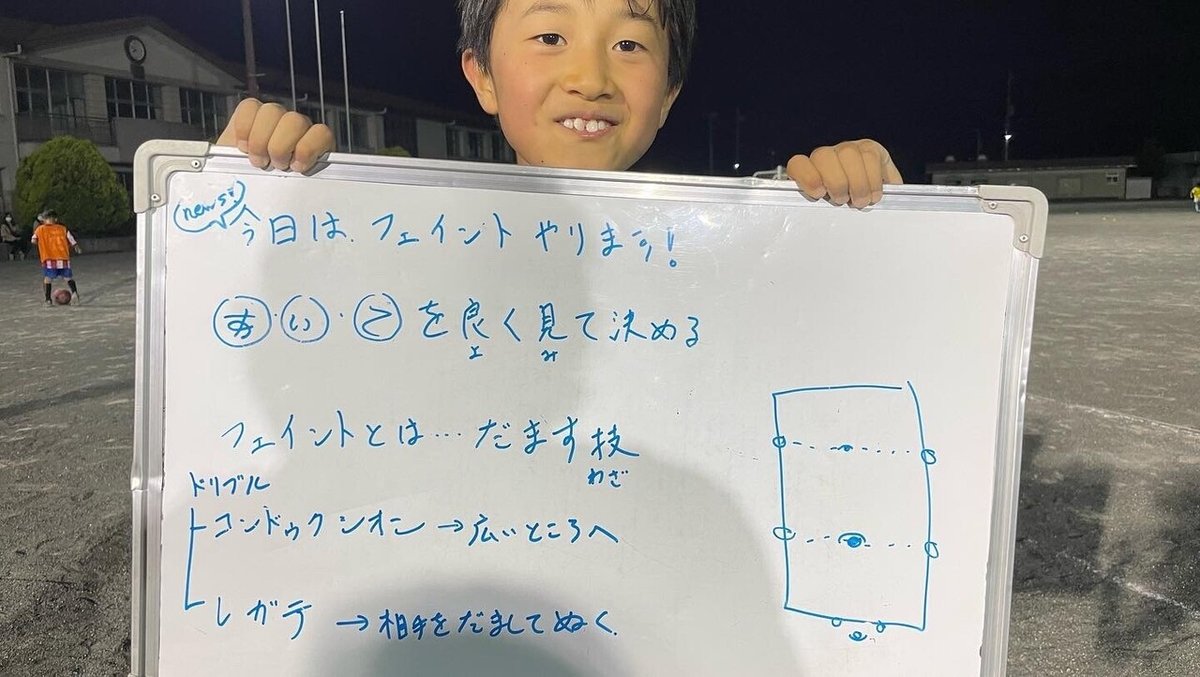 news!
今日は、フェイントやります!
い・ご を良く見て決める
よ み
フェイントとは…だます技
わざ
ドリブル
コンドゥクシオン→広いところへ
レガテ →相手をだましてぬく.